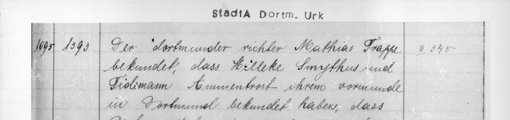 StadtA Dortm. Urk
1095 1393 Der dortmunder richter Mathias Trappe V 345
bekundet, dass Hilleke Smythus und
Tidemann Ammentrost ihrem vormunde
in Dortmund bekundet haben, dass